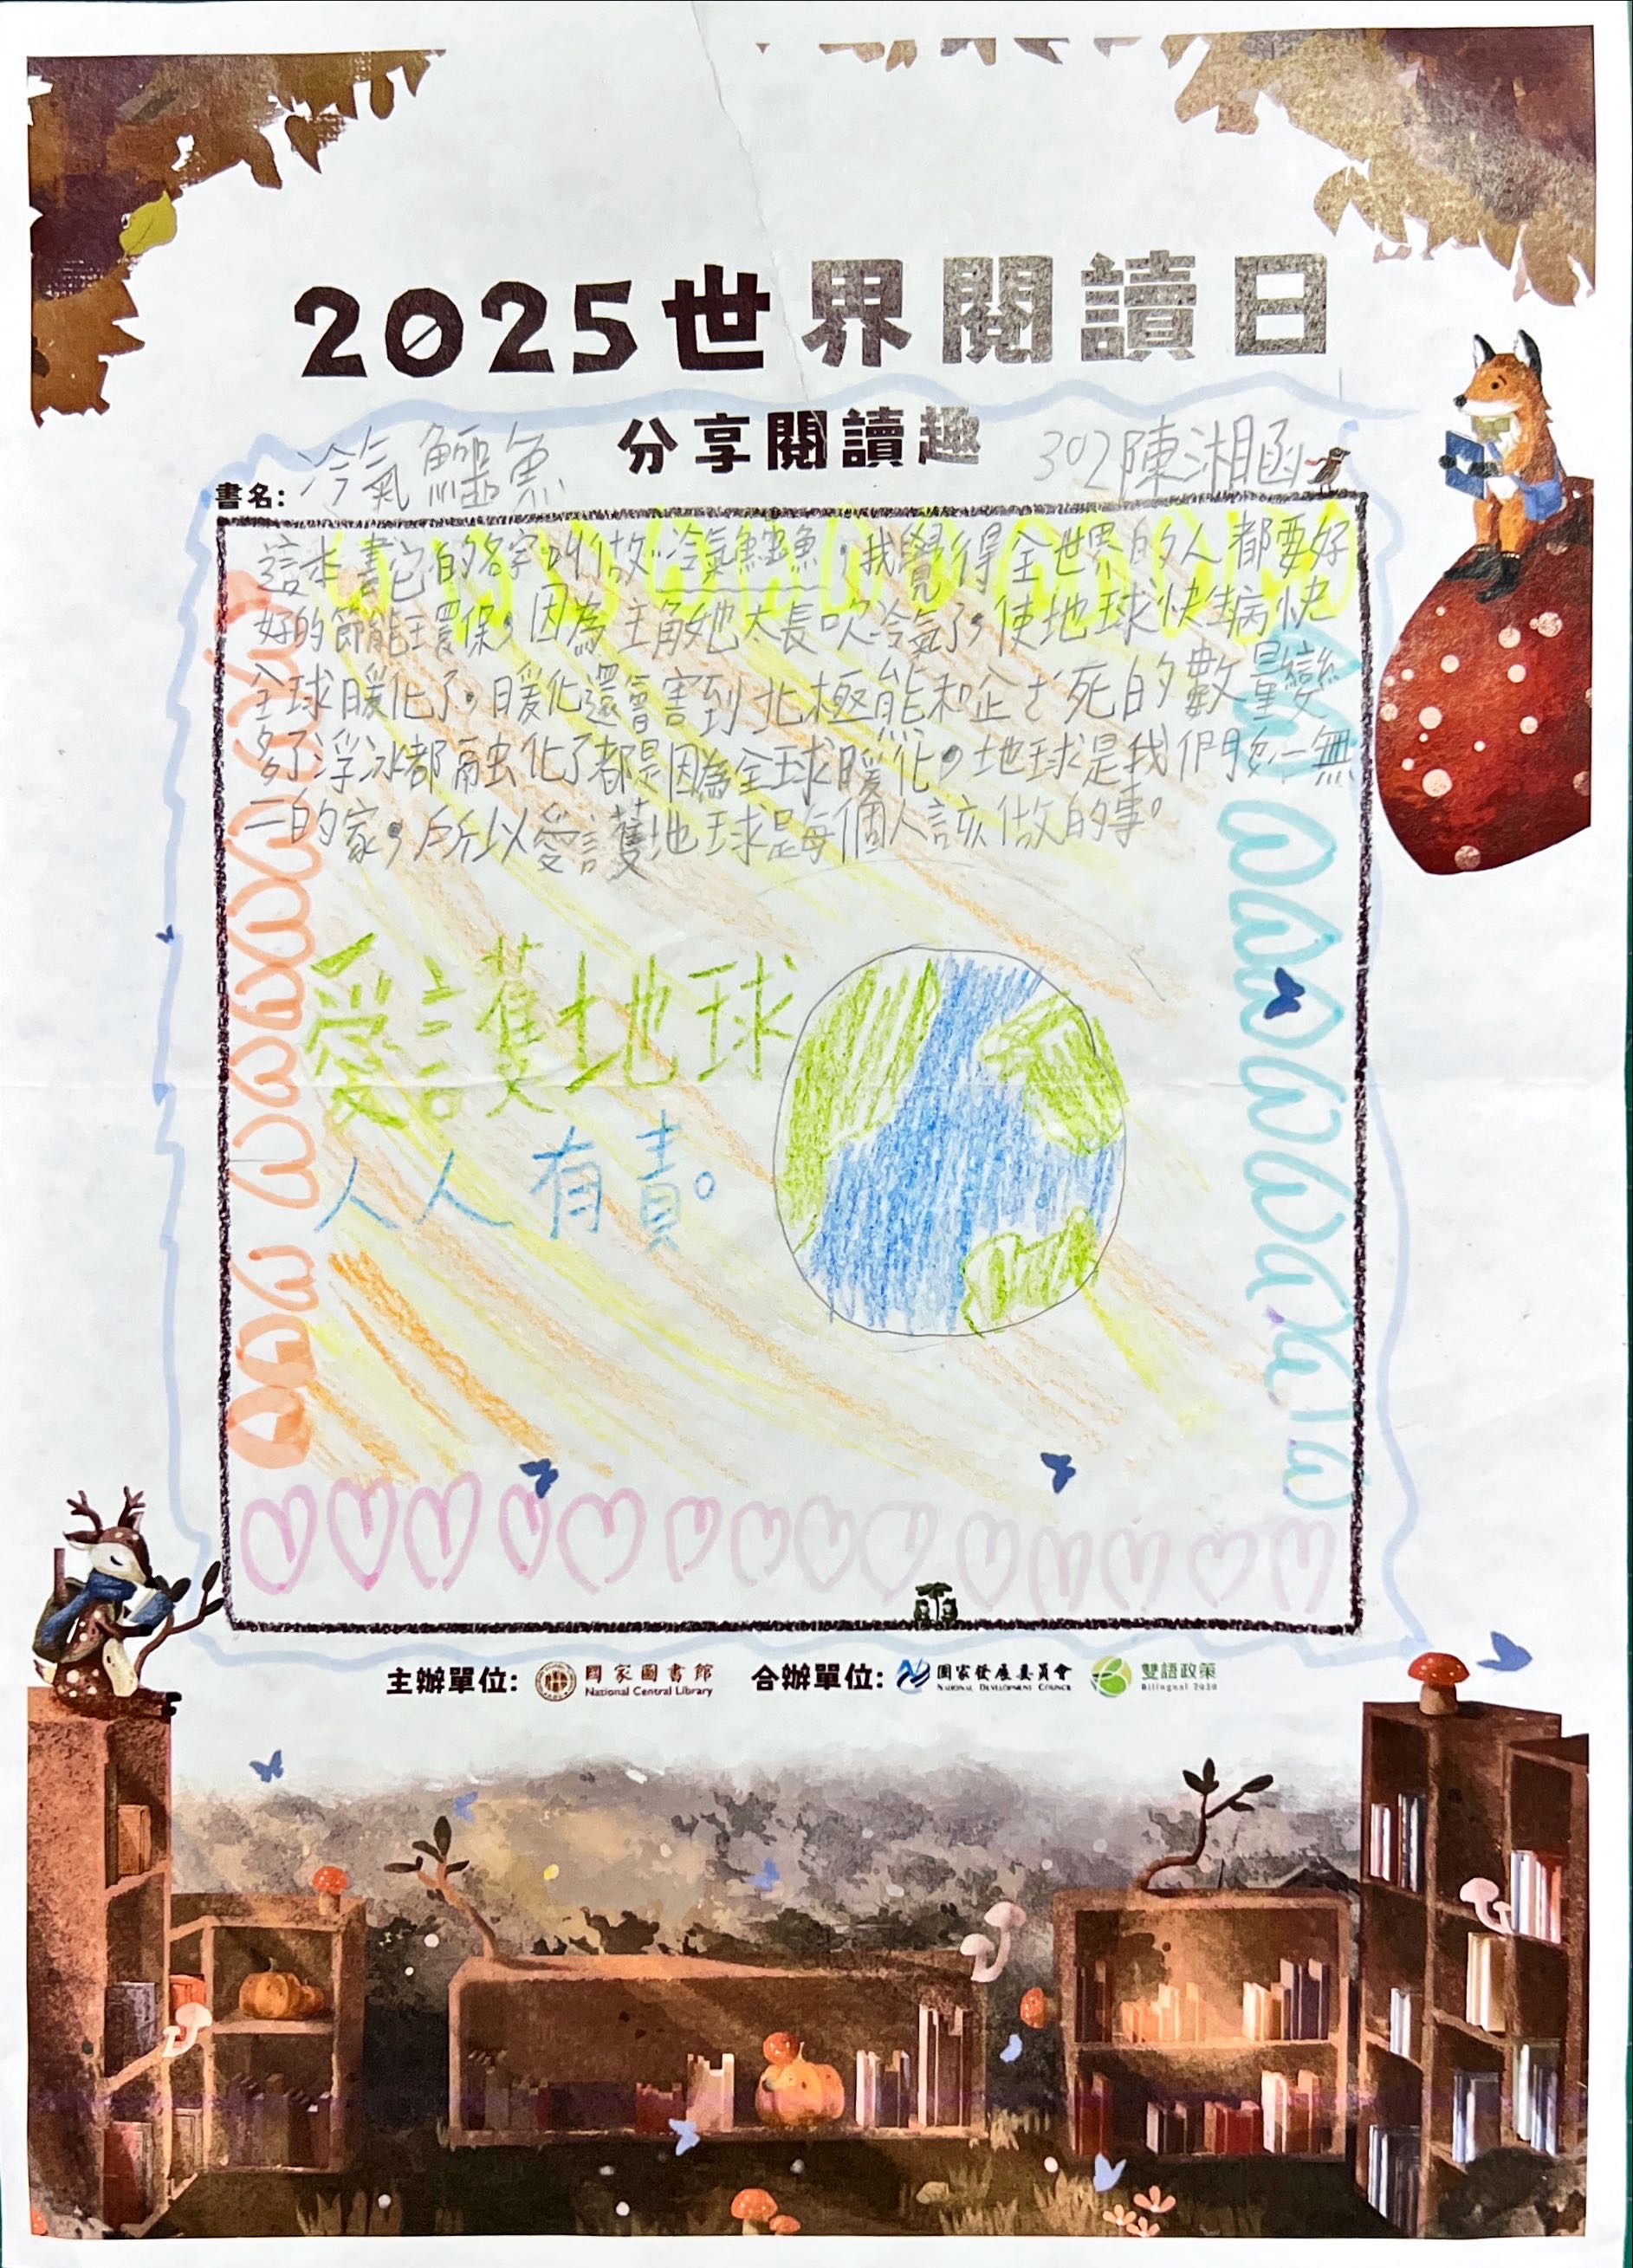 2025世界閱讀日
分享閱讀趣
302陳湘函
書名: 冷氣鱷魚
這本書它的名字叫做冷氣鱷魚,我覺得全世界的人都要好
好的節能環保,因為主角她太長吹冷氣了,使地球快生病快
全球暖化了。暖化還會害到北極熊和企ㄜˊ死的數量變
多了浮冰都融化了都是因為全球暖化。地球是我們獨一無
二的家,所以愛護地球是每個人該做的事。
愛護地球
人人有責。
主辦單位: 國家圖書館 National Central Library 合辦單位: 國家發展委員會 National Development Council 雙語政策 Bilingual 2030